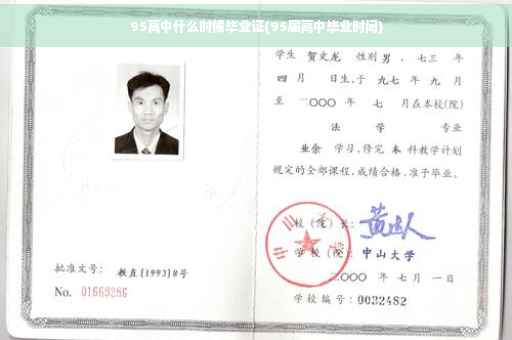 95高中什么时候毕业证(95届高中毕业时间)
学生 贺文龙 性别 男 、七三 年
四 月 日生,于 九七 年 九 月
至 二〇〇〇 年 七 月在本校(院)
法 学 专业
业余 学习,修完 本 科教学计划
规定的全部课程,成绩合格,准予毕业。
校(院)长:
学校(院): 中山大学
二〇〇〇 年 七 月 一 日
学校编号: 0032482
批准文号: 教直[1993]8号
No. 01669286